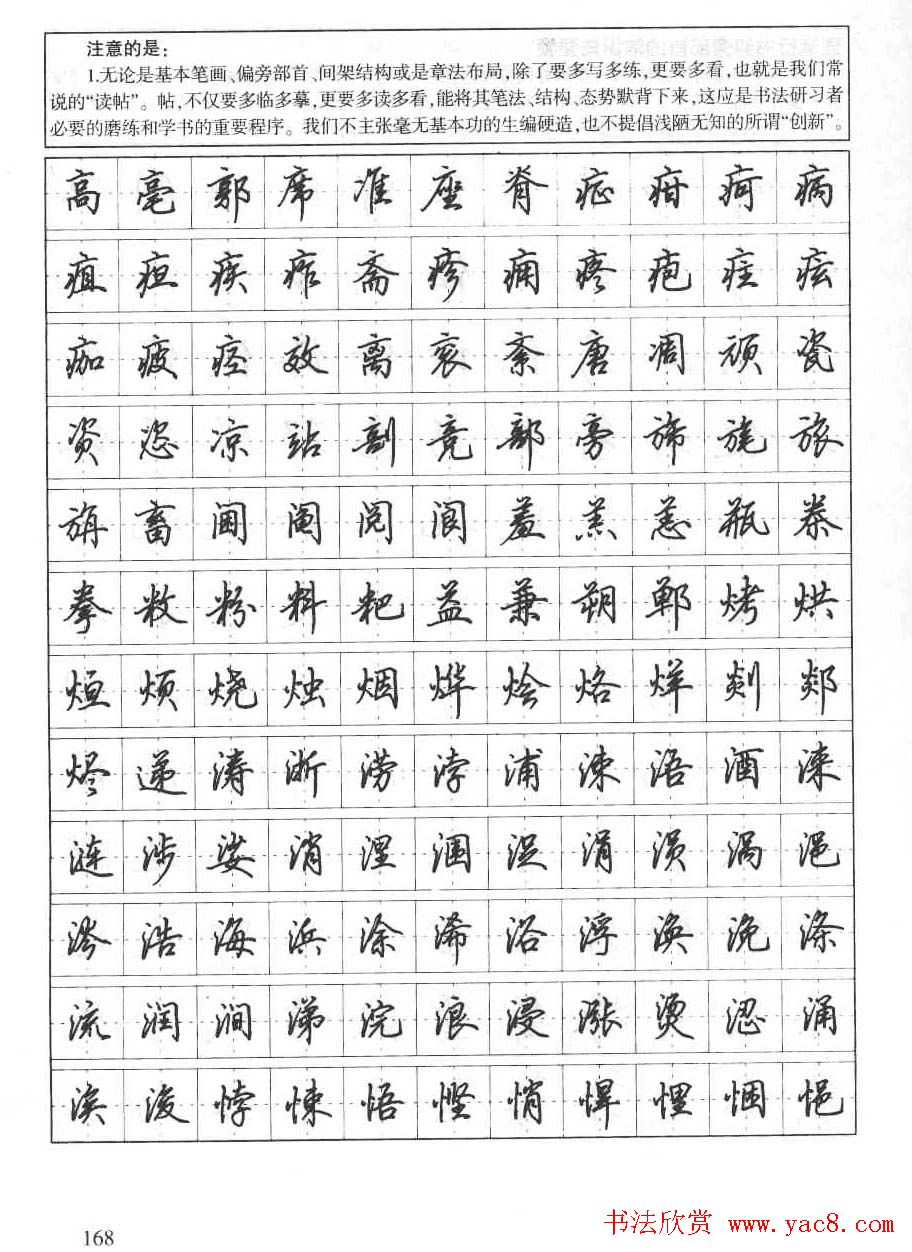 注意的是：
1.无论是基本笔画、偏旁部首、间架结构或是章法布局，除了要多写多练，更要多看，也就是我们常
说的“读帖”。帖，不仅要多临多摹，更要多读多看，能将其笔法、结构、态势默背下来，这应是书法研习者
必要的磨练和学书的重要程序。我们不主张毫无基本功的生编硬造，也不提倡浅陋无知的所谓“创新”。
高 亳 郭 席 准 座 脊 症 疳 疴 病
疽 疸 疾 痄 斋 疹 痈 疼 疱 疰 痃
痂 疲 痉 效 离 衮 紊 唐 凋 顽 瓷
资 恣 凉 站 剖 竞 部 旁 旆 旄 旅
旃 畜 阃 阄 阅 阆 羞 羔 恙 瓶 桊
拳 敉 粉 料 粑 益 兼 朔 郸 烤 烘
烜 烦 烧 烛 烟 烨 烩 烙 烊 剡 郯
烬 递 涛 浙 涝 浡 浦 涑 浯 酒 涞
涟 涉 娑 消 涅 涠 浞 涓 涢 涡 浥
涔 浩 海 浜 涂 浠 浴 浮 涣 浼 涤
流 润 涧 涕 浣 浪 浸 涨 烫 涩 涌
涘 浚 悖 悚 悟 悭 悄 悍 悝 悃 悒
168
书法欣赏 www.yac8.com